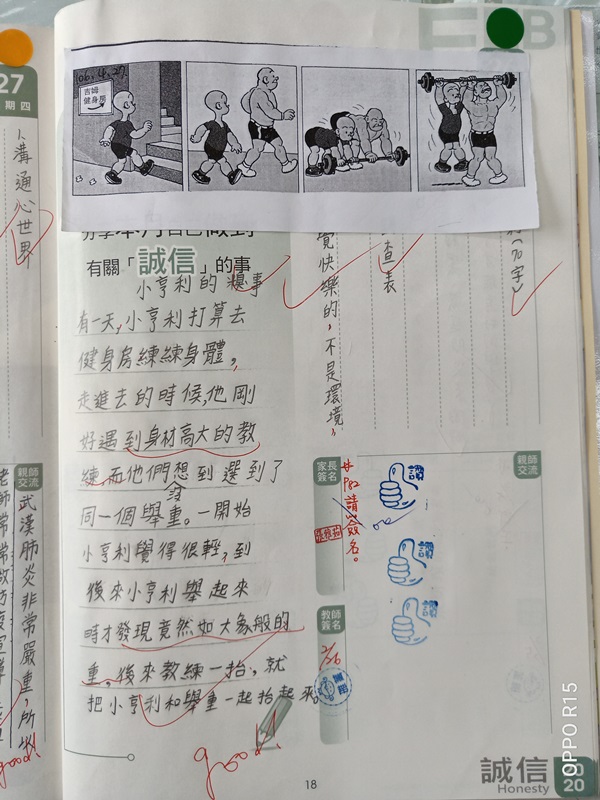 27
期四
溝通心世界
親師交流
武漢肺炎非常嚴重，所以
good!
06.4.27
吉姆
健身房
有關「誠信」的事
小亨利的趣事
有一天，小亨利打算去
健身房練練身體，
走進去的時候，他剛
好遇到身材高大的教
練而他們想到選到了
同一個舉重。一開始
小亨利覺得很輕，到
後來小亨利舉起來
時才發現竟然如大象般的
重。後來教練一抬，就
把小亨利和舉重一起抬起來
good!
(70字)
查表
覺快樂的，不是環境，
家長簽名
請簽名。
讚
讚
讚
教師簽名
2/26
親師交流
18
誠信
Honesty
20
OPPO R15